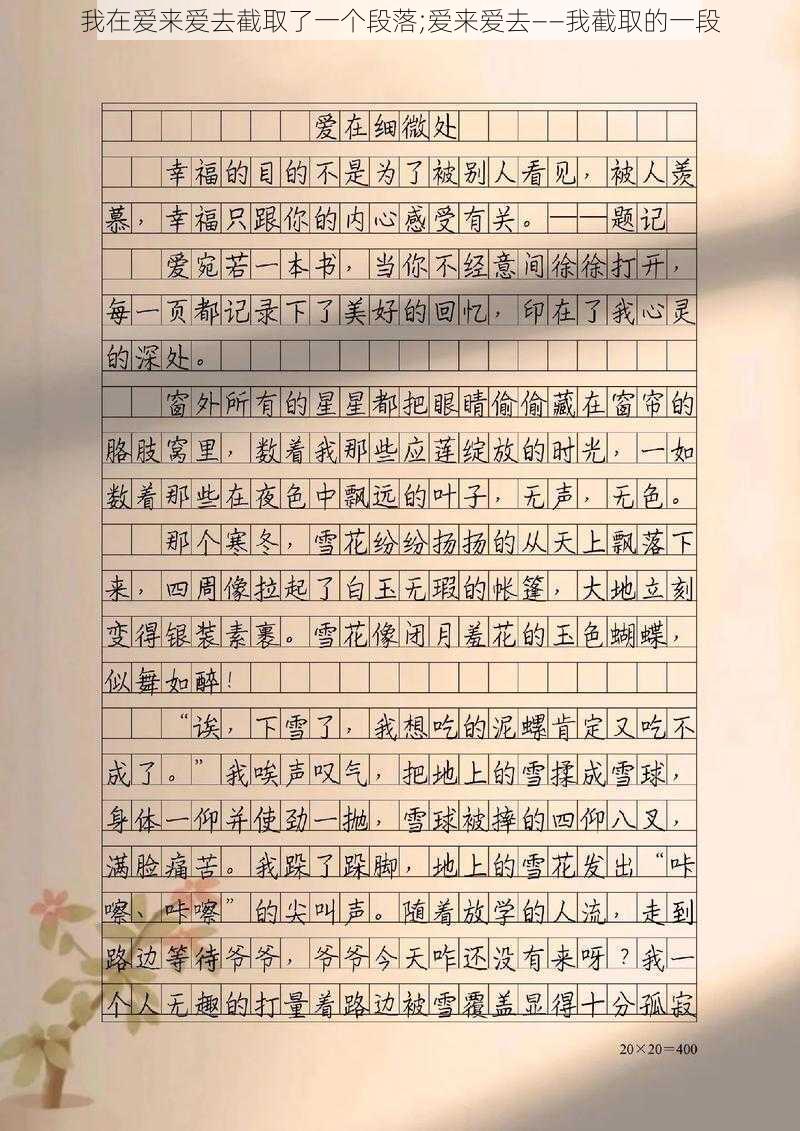 我在爱来爱去截取了一个段落;爱来爱去——我截取的一段
爱在细微处
幸福的目的不是为了被别人看见，被人羡
慕，幸福只跟你的内心感受有关。——题记
爱宛若一本书，当你不经意间徐徐打开，
每一页都记录下了美好的回忆，印在了我心灵
的深处。
窗外所有的星星都把眼睛偷偷藏在窗帘的
胳肢窝里，数着我那些应莲绽放的时光，一如
数着那些在夜色中飘远的叶子，无声，无色。
那个寒冬，雪花纷纷扬扬的从天上飘落下
来，四周像拉起了白玉无瑕的帐篷，大地立刻
变得银装素裹。雪花像闭月羞花的玉色蝴蝶，
似舞如醉！
“诶，下雪了，我想吃的泥螺肯定又吃不
成了。”我唉声叹气，把地上的雪揉成雪球，
身体一仰并使劲一抛，雪球被摔的四仰八叉，
满脸痛苦。我跺了跺脚，地上的雪花发出“咔
嚓、咔嚓”的尖叫声。随着放学的人流，走到
路边等待爷爷，爷爷今天咋还没有来呀？我一
个人无趣的打量着路边被雪覆盖显得十分孤寂
20×20=400